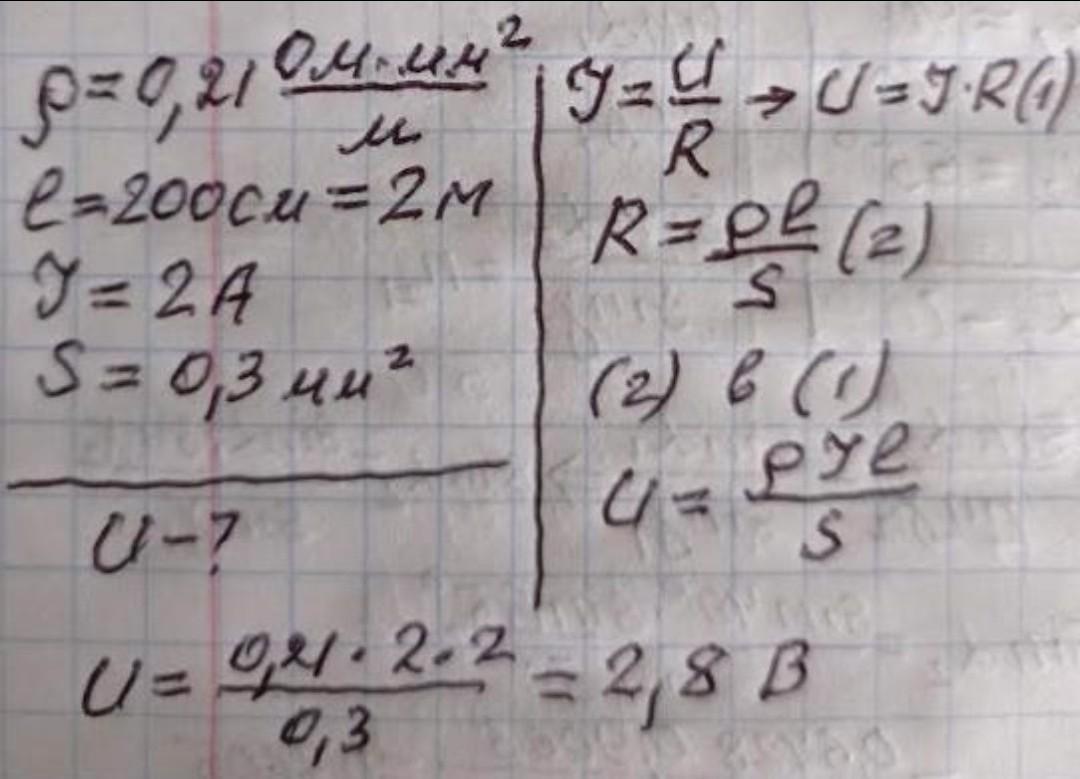 ρ = 0,21 Ом·мм²/м
l = 200см = 2м
I = 2А
S = 0,3 мм²
U - ?
I = U/R → U = I·R (1)
R = ρl/S (2)
(2) в (1)
U = ρIl/S
U = 0,21·2·2/0,3 = 2,8 В